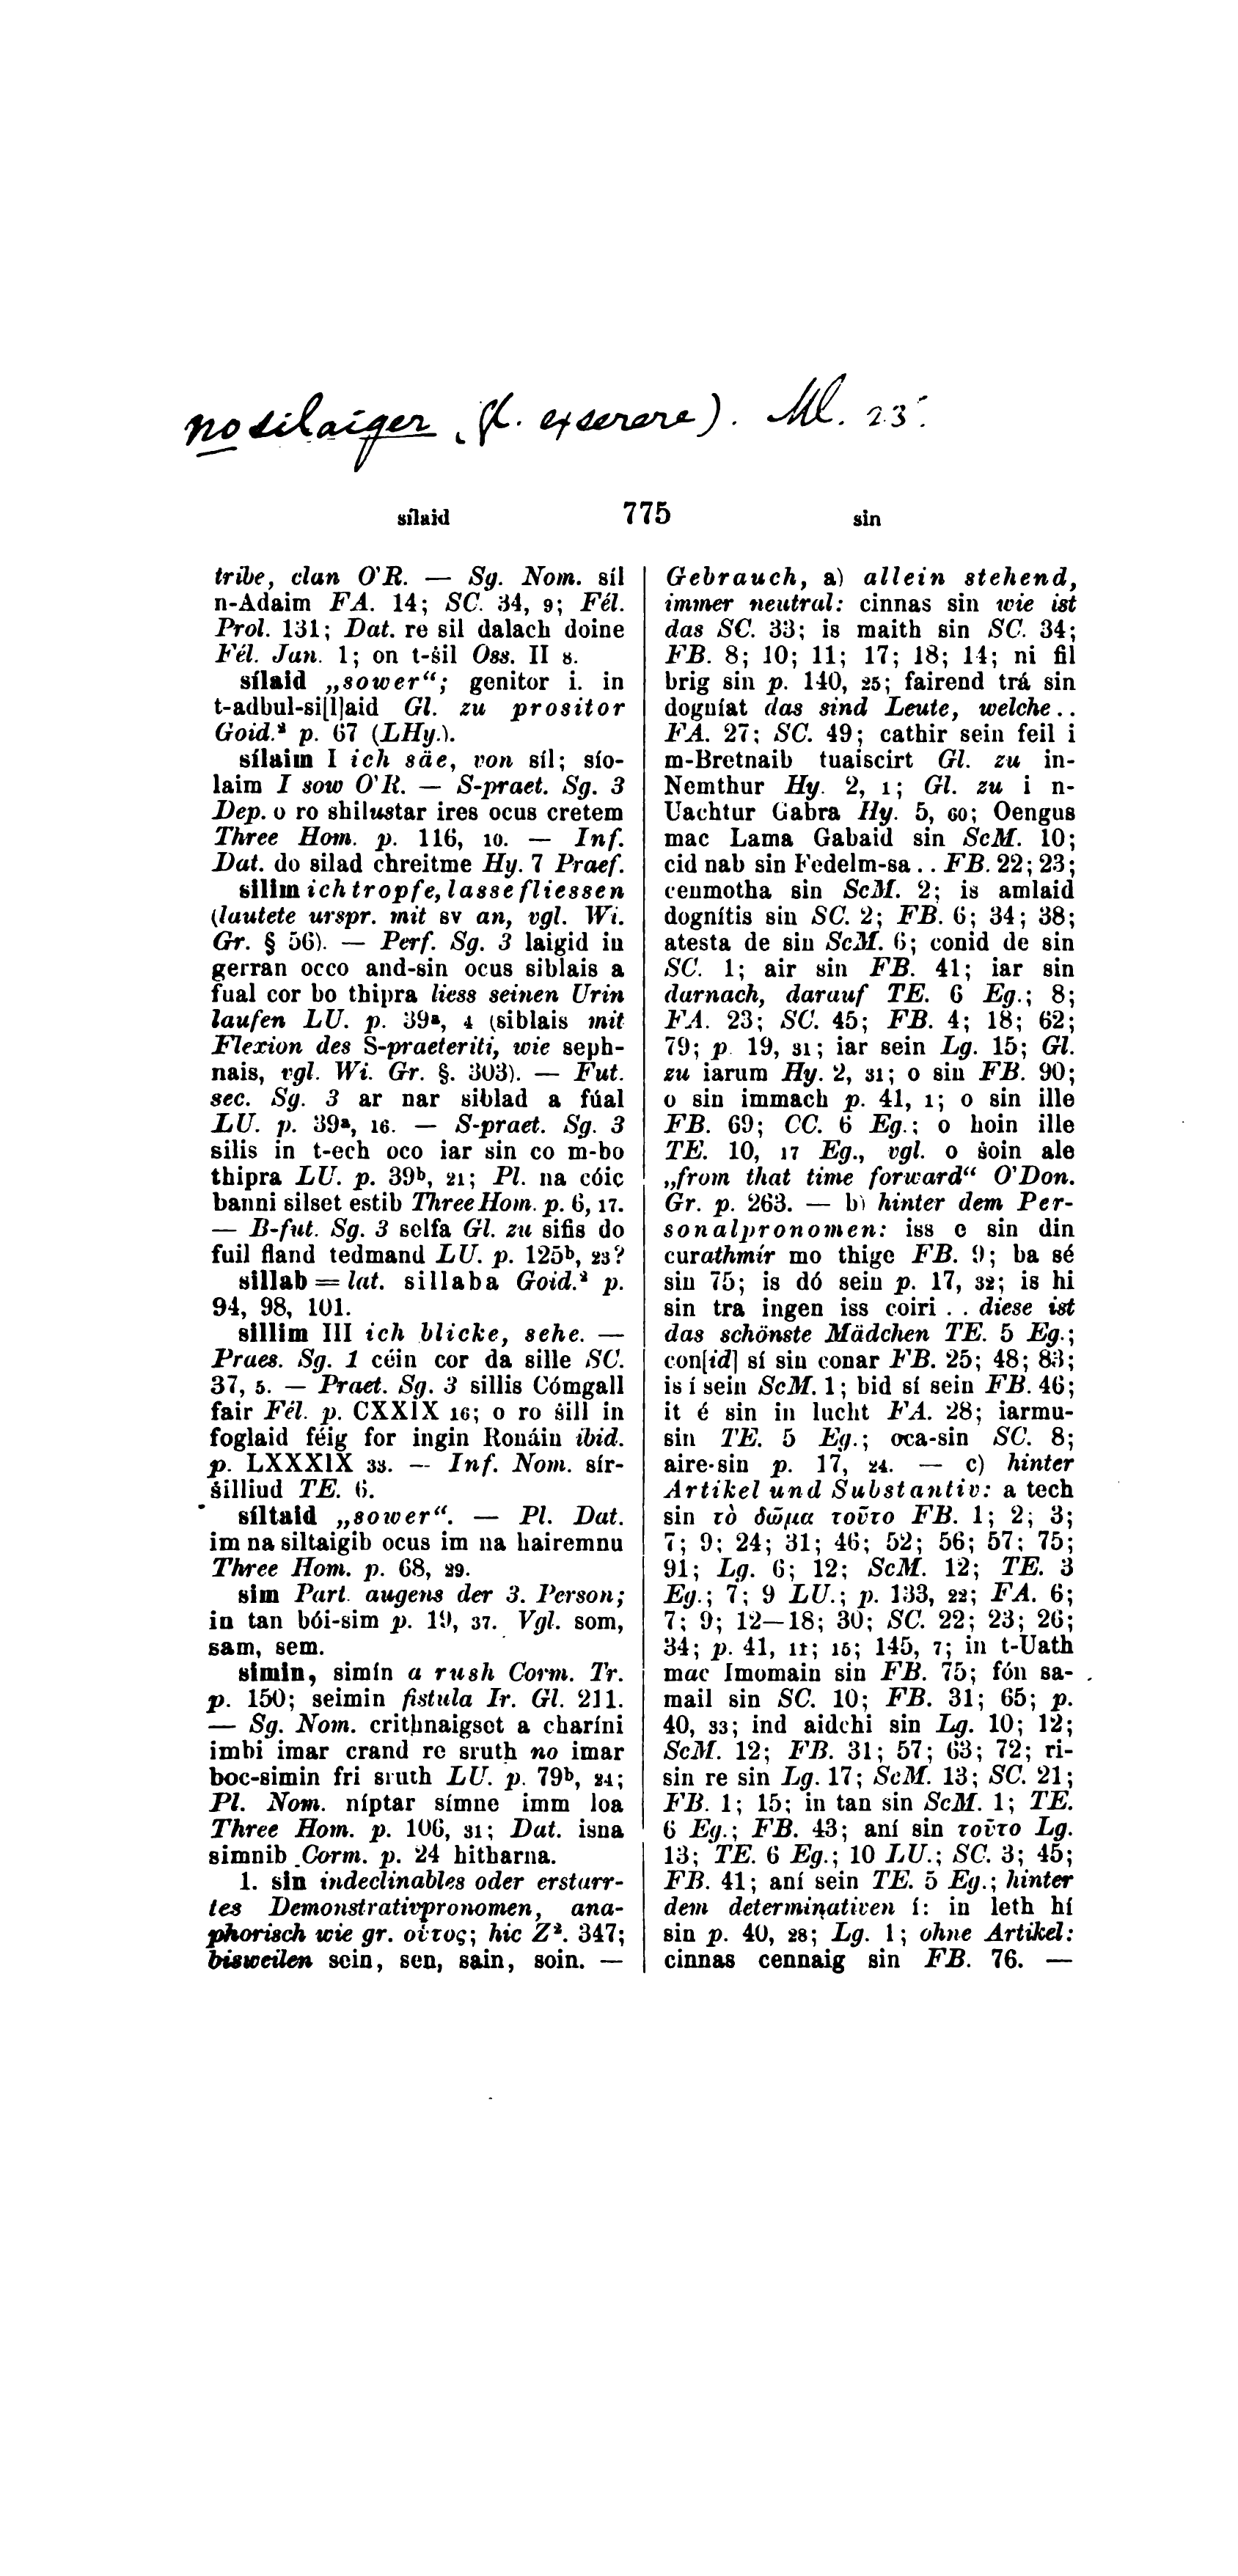 no silaiger (gl. exserere). Ml. 23.
sílaid 775 sin
tribe, clan O'R. — Sg. Nom. síl
n-Adaim FA. 14; SC. 34, 9; Fél.
Prol. 131; Dat. re sil dalach doine
Fél. Jan. 1; on t-ṡil Oss. II 8.
sílaid „sower“; genitor i. in
t-adbul-si[l]aid Gl. zu prositor
Goid.² p. 67 (LHy.).
sílaim I ich säe, von síl; sío-
laim I sow O'R. — S-praet. Sg. 3
Dep. o ro shilustar ires ocus cretem
Three Hom. p. 116, 10. — Inf.
Dat. do silad chreitme Hy. 7 Praef.
silim ich tropfe, lasse fliessen
(lautete urspr. mit sv an, vgl. Wi.
Gr. § 56). — Perf. Sg. 3 laigid in
gerran occo and-sin ocus siblais a
fual cor bo thipra liess seinen Urin
laufen LU. p. 39ᵃ, 4 (siblais mit
Flexion des S-praeteriti, wie seph-
nais, vgl. Wi. Gr. §. 303). — Fut.
sec. Sg. 3 ar nar siblad a fúal
LU. p. 39ᵃ, 16. — S-praet. Sg. 3
silis in t-ech oco iar sin co m-bo
thipra LU. p. 39ᵇ, 21; Pl. na cóic
banni silset estib Three Hom. p. 6, 17.
— B-fut. Sg. 3 selfa Gl. zu sifis do
fuil fland tedmand LU. p. 125ᵇ, 23?
sillab = lat. sillaba Goid.² p.
94, 98, 101.
sillim III ich blicke, sehe. —
Praes. Sg. 1 céin cor da sille SC.
37, 5. — Praet. Sg. 3 sillis Cómgall
fair Fél. p. CXXIX 16; o ro ṡill in
foglaid féig for ingin Ronáin ibid.
p. LXXXIX 33. — Inf. Nom. sír-
ṡilliud TE. 6.
síltaid „sower“. — Pl. Dat.
im na siltaigib ocus im na hairemnu
Three Hom. p. 68, 29.
sim Part. augens der 3. Person;
in tan bói-sim p. 19, 37. Vgl. som,
sam, sem.
simin, simín a rush Corm. Tr.
p. 150; seimin fistula Ir. Gl. 211.
— Sg. Nom. crithnaigset a charíni
imbi imar crand re sruth no imar
boc-simin fri sruth LU. p. 79ᵇ, 24;
Pl. Nom. níptar símne imm loa
Three Hom. p. 106, 31; Dat. isna
simnib Corm. p. 24 hitharna.
1. sin indeclinables oder erstarr-
tes Demonstrativpronomen, ana-
phorisch wie gr. οὗτος; hic Z². 347;
bisweilen sein, sen, sain, soin. —
Gebrauch, a) allein stehend,
immer neutral: cinnas sin wie ist
das SC. 33; is maith sin SC. 34;
FB. 8; 10; 11; 17; 18; 14; ni fil
brig sin p. 140, 25; fairend trá sin
doguíat das sind Leute, welche..
FA. 27; SC. 49; cathir sein feil i
m-Bretnaib tuaiscirt Gl. zu in-
Nemthur Hy. 2, 1; Gl. zu i n-
Uachtur Gabra Hy. 5, 60; Oengus
mac Lama Gabaid sin ScM. 10;
cid nab sin Fedelm-sa .. FB. 22; 23;
cenmotha sin ScM. 2; is amlaid
dognítis sin SC. 2; FB. 6; 34; 38;
atesta de sin ScM. 6; conid de sin
SC. 1; air sin FB. 41; iar sin
darnach, darauf TE. 6 Eg.; 8;
FA. 23; SC. 45; FB. 4; 18; 62;
79; p. 19, 31; iar sein Lg. 15; Gl.
zu iarum Hy. 2, 31; o sin FB. 90;
o sin immach p. 41, 1; o sin ille
FB. 69; CC. 6 Eg.; o hoin ille
TE. 10, 17 Eg., vgl. o ṡoin ale
„from that time forward“ O'Don.
Gr. p. 263. — b) hinter dem Per-
sonalpronomen: iss e sin din
curathmír mo thige FB. 9; ba sé
sin 75; is dó sein p. 17, 32; is hi
sin tra ingen iss coiri .. diese ist
das schönste Mädchen TE. 5 Eg.;
con[id] sí sin conar FB. 25; 48; 83;
is í sein ScM. 1; bid sí sein FB. 46;
it é sin in lucht FA. 28; iarmu-
sin TE. 5 Eg.; oca-sin SC. 8;
aire-sin p. 17, 24. — c) hinter
Artikel und Substantiv: a tech
sin τὸ δῶμα τοῦτο FB. 1; 2; 3;
7; 9; 24; 31; 46; 52; 56; 57; 75;
91; Lg. 6; 12; ScM. 12; TE. 3
Eg.; 7; 9 LU.; p. 133, 22; FA. 6;
7; 9; 12—18; 30; SC. 22; 23; 26;
34; p. 41, 11; 15; 145, 7; in t-Uath
mac Imomain sin FB. 75; fón sa-
mail sin SC. 10; FB. 31; 65; p.
40, 33; ind aidchi sin Lg. 10; 12;
ScM. 12; FB. 31; 57; 63; 72; ri-
sin re sin Lg. 17; ScM. 13; SC. 21;
FB. 1; 15; in tan sin ScM. 1; TE.
6 Eg.; FB. 43; aní sin τοῦτο Lg.
13; TE. 6 Eg.; 10 LU.; SC. 3; 45;
FB. 41; aní sein TE. 5 Eg.; hinter
dem determinativen í: in leth hí
sin p. 40, 28; Lg. 1; ohne Artikel:
cinnas cennaig sin FB. 76. —